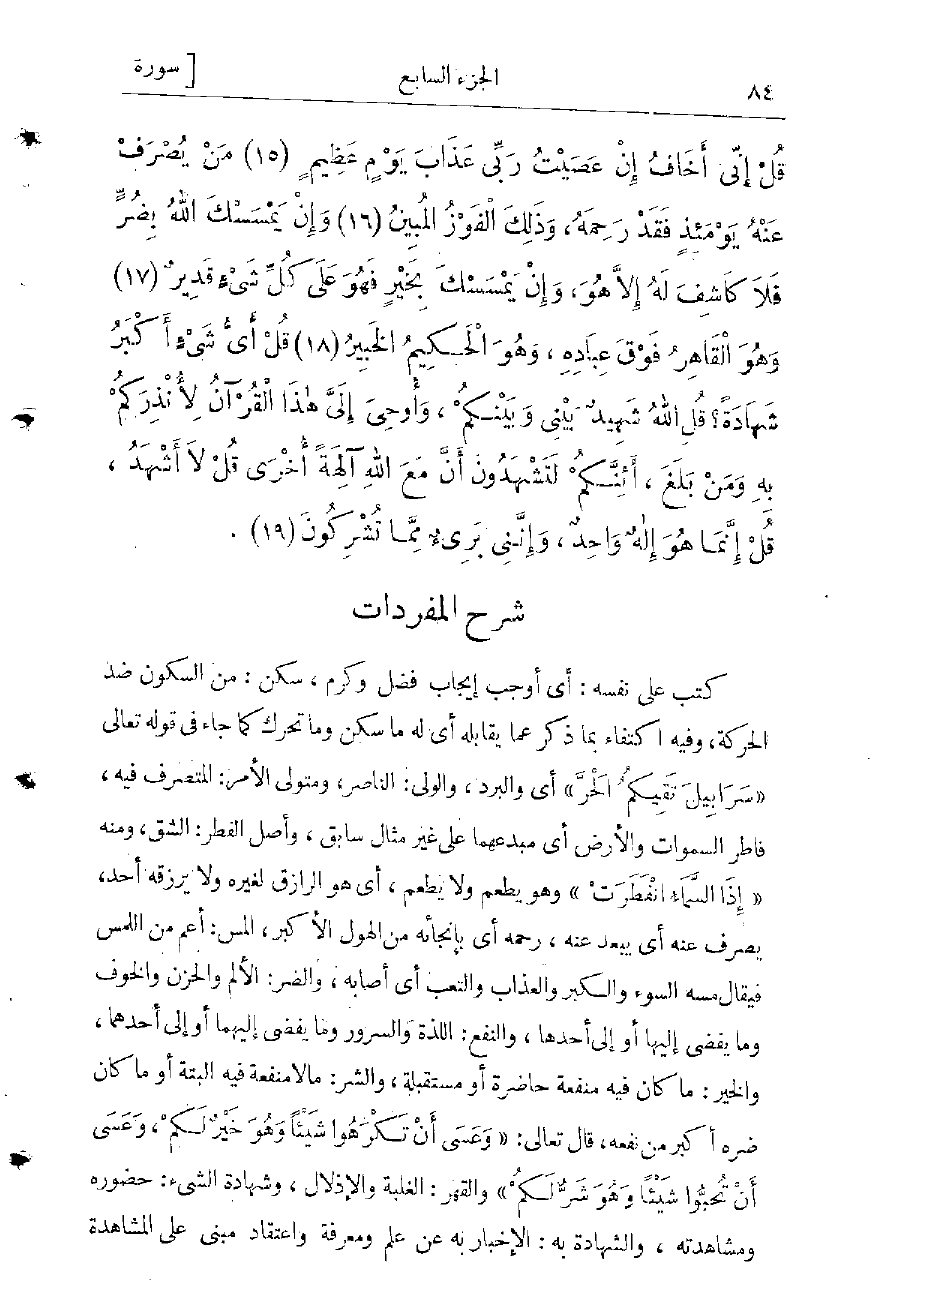 ٨٤ الجزء السابع [ سورة
قُلْ إنِّى أَخَافُ إِنْ عَصَيْتُ رَبِّى عَذَابَ يَوْمٍ عَظِيمٍ (١٥) مَنْ يُصْرَفْ
عَنْهُ يَوْمَئِذٍ فَقَدْ رَحِمَهُ، وَذَلِكَ الْفَوْزُ الْمُبِينُ (١٦) وَإِنْ يَمْسَسْكَ اللهُ بِضُرٍّ
فَلاَ كَاشِفَ لَهُ إِلاَّ هُوَ، وَإِنْ يَمْسَسْكَ بِخَيْرٍ فَهُوَ عَلَى كُلِّ شَىْءٍ قَدِيرٌ (١٧)
وَهُوَ الْقَاهِرُ فَوْقَ عِبَادِهِ ، وَهُوَ الْحَكِيمُ الْخَبِيرُ (١٨) قُلْ أَىُّ شَىْءٍ أَكْبَرُ
شَهَادَةً؟ قُلِ اللهُ شَهِيدٌ بَيْنِى وَبَيْنَكُمْ ، وَأُوحِىَ إِلَىَّ هٰذَا الْقُرْآنُ لِأُنْذِرَكُمْ
بِهِ وَمَنْ بَلَغَ ، أَئِنَّكُمْ لَتَشْهَدُونَ أَنَّ مَعَ اللهِ آلِهَةً أُخْرَى قُلْ لاَ أَشْهَدُ ،
قُلْ إِنَّمَا هُوَ إِلٰهٌ وَاحِدٌ ، وَإِنَّنِى بَرِىءٌ مِمَّا تُشْرِكُونَ (١٩) .
شرح المفردات
كتب على نفسه : أى أوجب إيجاب فضل وكرم ، سكن : من السكون ضد
الحركة، وفيه اكتفاء بما ذكر عما يقابله أى له ما سكن وما تحرك كما جاء فى قوله تعالى
«سَرَابِيلَ تَقِيكُمُ الْحَرَّ» أى والبرد ، والولى: الناصر، ومتولى الأمر: المتصرف فيه ،
فاطر السموات والأرض أى مبدعهما على غير مثال سابق ، وأصل الفطر: الشق، ومنه
« إِذَا السَّمَاءِ انْفَطَرَتْ » وهو يطعم ولا يطعم ، أى هو الرازق لغيره ولا يرزقه أحد،
يصرف عنه أى يبعد عنه ، رحمه أى بإنجائه من الهول الأكبر، المس: أعم من اللمس
فيقال مسه السوء والكبر والعذاب والتعب أى أصابه ، والضر: الألم والحزن والخوف
وما يفضى إليها أو إلى أحدها ، والنفع: اللذة والسرور وما يفضى إليهما أو إلى أحدهما ،
والخير : ما كان فيه منفعة حاضرة أو مستقبلة ، والشر: مالا منفعة فيه البتة أو ما كان
ضره أكبر من نفعه، قال تعالى: « وَعَسَى أَنْ تَكْرَهُوا شَيْئًا وَهُوَ خَيْرٌ لَكُمْ ، وَعَسَى
أَنْ تُحِبُّوا شَيْئًا وَهُوَ شَرٌّ لَكُمْ » والقهر : الغلبة والإذلال ، وشهادة الشىء: حضوره
ومشاهدته ، والشهادة به : الإخبار به عن علم ومعرفة واعتقاد مبنى على المشاهدة